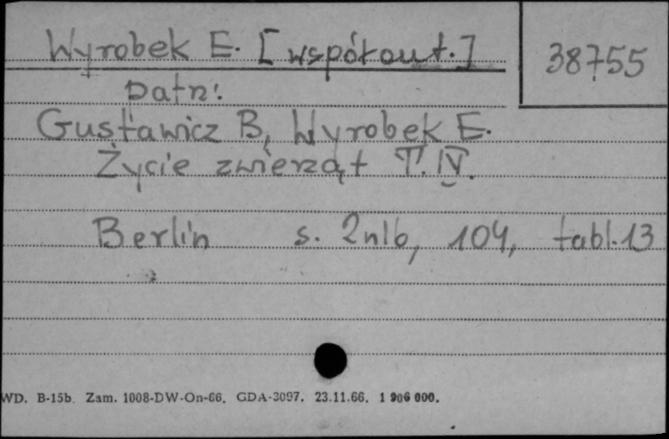 Wyrobek E. [współaut.]
38755
Patrz:
Gustawicz B, Wyrobek E.
Życie zwierząt T. IV.
Berlin s. 2nlb, 104, tabl. 13
WD. B-15b. Zam. 1008-DW-On-66. GDA-3097. 23.11.66. 1 906 000.